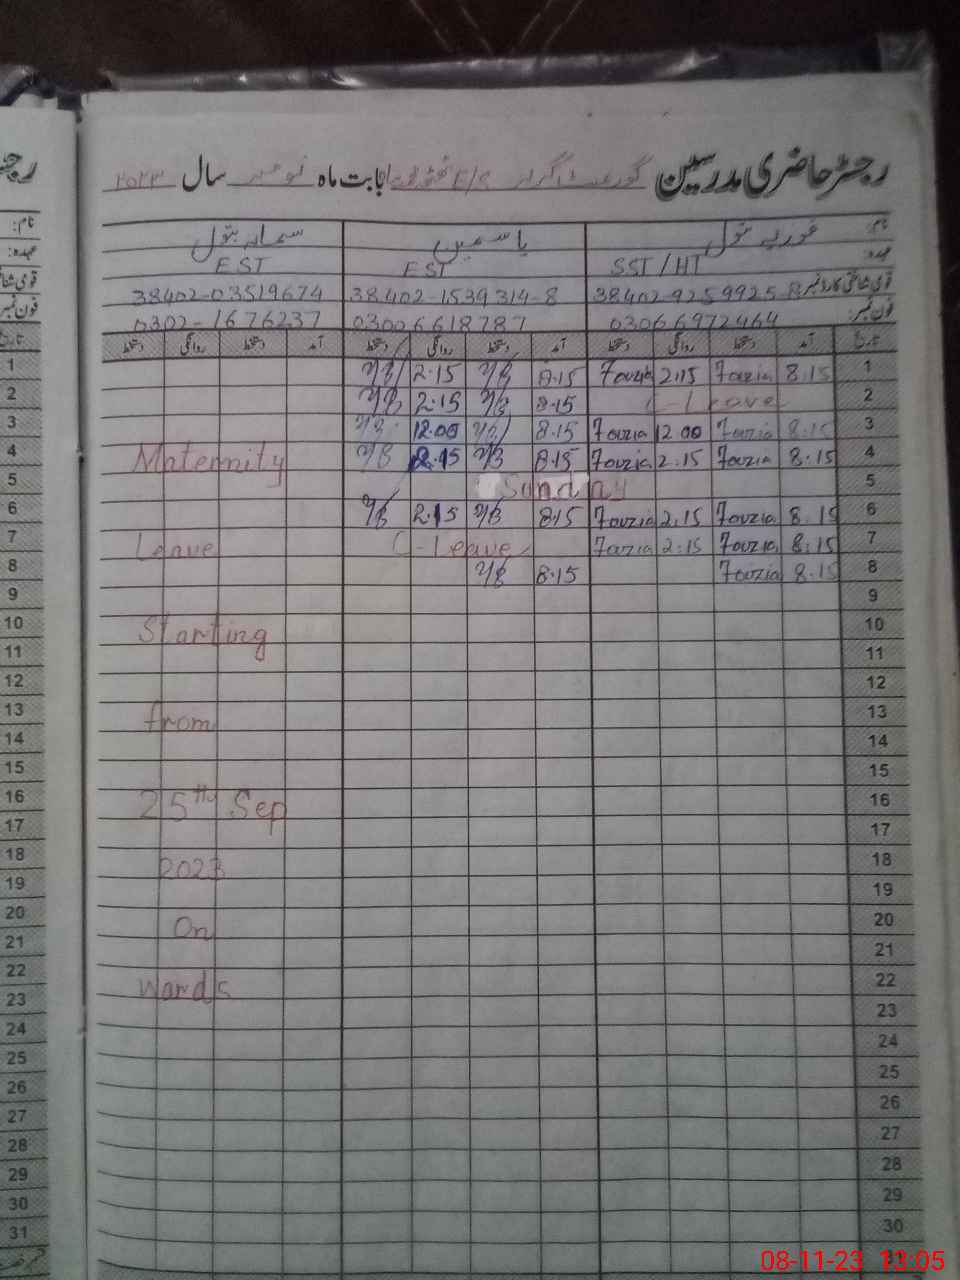 رجسٹر حاضری مدرسین گورنمنٹ گرلز E/S بابت ماہ نومبر سال ۲۰۲۳
نام: فوزیہ بتول یاسمین سمانہ بتول
عہدہ: SST/HT EST EST
قومی شناختی کارڈ نمبر 38402-9259925-8 38402-1539314-8 38402-03519674
فون نمبر: 03066972464 03006618787 0302-1676237
تاریخ آمد دستخط روانگی دستخط آمد دستخط روانگی دستخط آمد دستخط روانگی دستخط تاریخ
1 Y/B 2.15 Y/B 8.15 Fouzia 2:15 Fouzia 8.15 1
2 Y/B 2.15 Y/B 8.15 C-Leave 2
3 Y/B 12.00 Y/B 8.15 Fouzia 12.00 Fouzia 8.15 3
4 Maternity Y/B 2.15 Y/B 8.15 Fouzia 2.15 Fouzia 8.15 4
5 Sunday 5
6 Y/B 2.15 Y/B 8.15 Fouzia 2.15 Fouzia 8.15 6
7 Leave C-Leave Fouzia 2:15 Fouzia 8:15 7
8 Y/B 8.15 Fouzia 8.15 8
9 9
10 Starting 10
11 11
12 12
13 from 13
14 14
15 15
16 25th Sep 16
17 17
18 2023 18
19 19
20 On 20
21 21
22 Wards 22
23 23
24 24
25 25
26 26
27 27
28 28
29 29
30 30
31 31
08-11-23 13:05